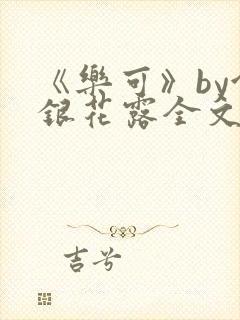 《樂可》by
銀花露全文
吉兮